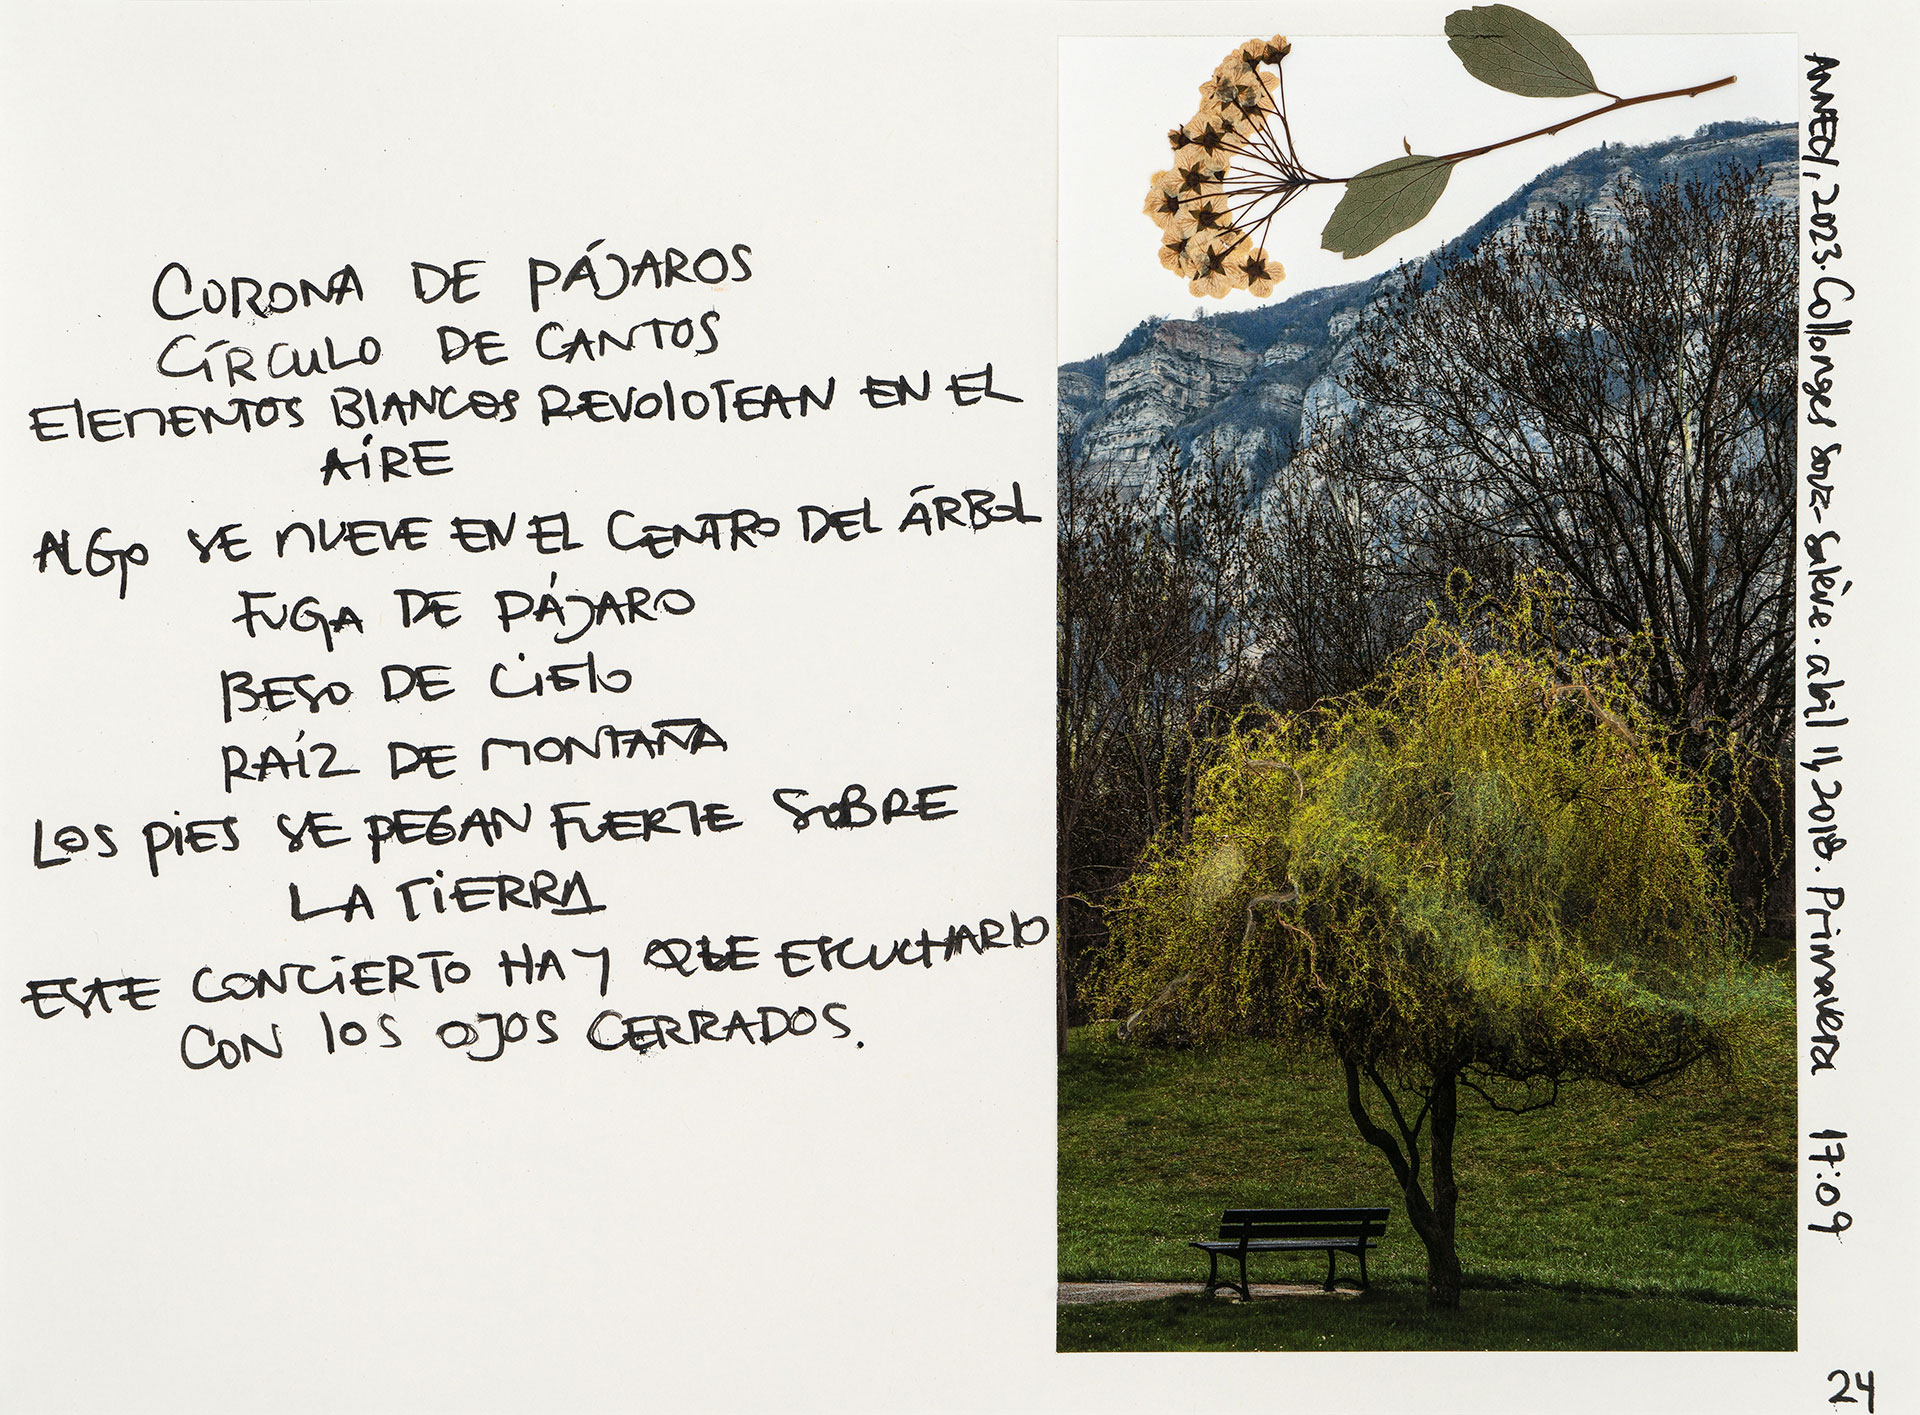 CORONA DE PÁJAROS
CÍRCULO DE CANTOS
ElEMENTOS BlANCOS REVOlOTEAN EN EL
AIRE
ALGO SE MUEVE EN EL CENTRO DEL ÁRBOL
FUGA DE PÁJARO
BESO DE CIElO
RAÍZ DE MONTAÑA
LOS PIES SE PEGAN FUERTE SOBRE
LA TIERRA
ESTE CONCIERTO HAY QUE ESCUCHARlO
CON lOS OJOS CERRADOS.
ANNECY, 2023. Collonges Sous-Salève. abril 11, 2018. PrimaVERA 17:09
24